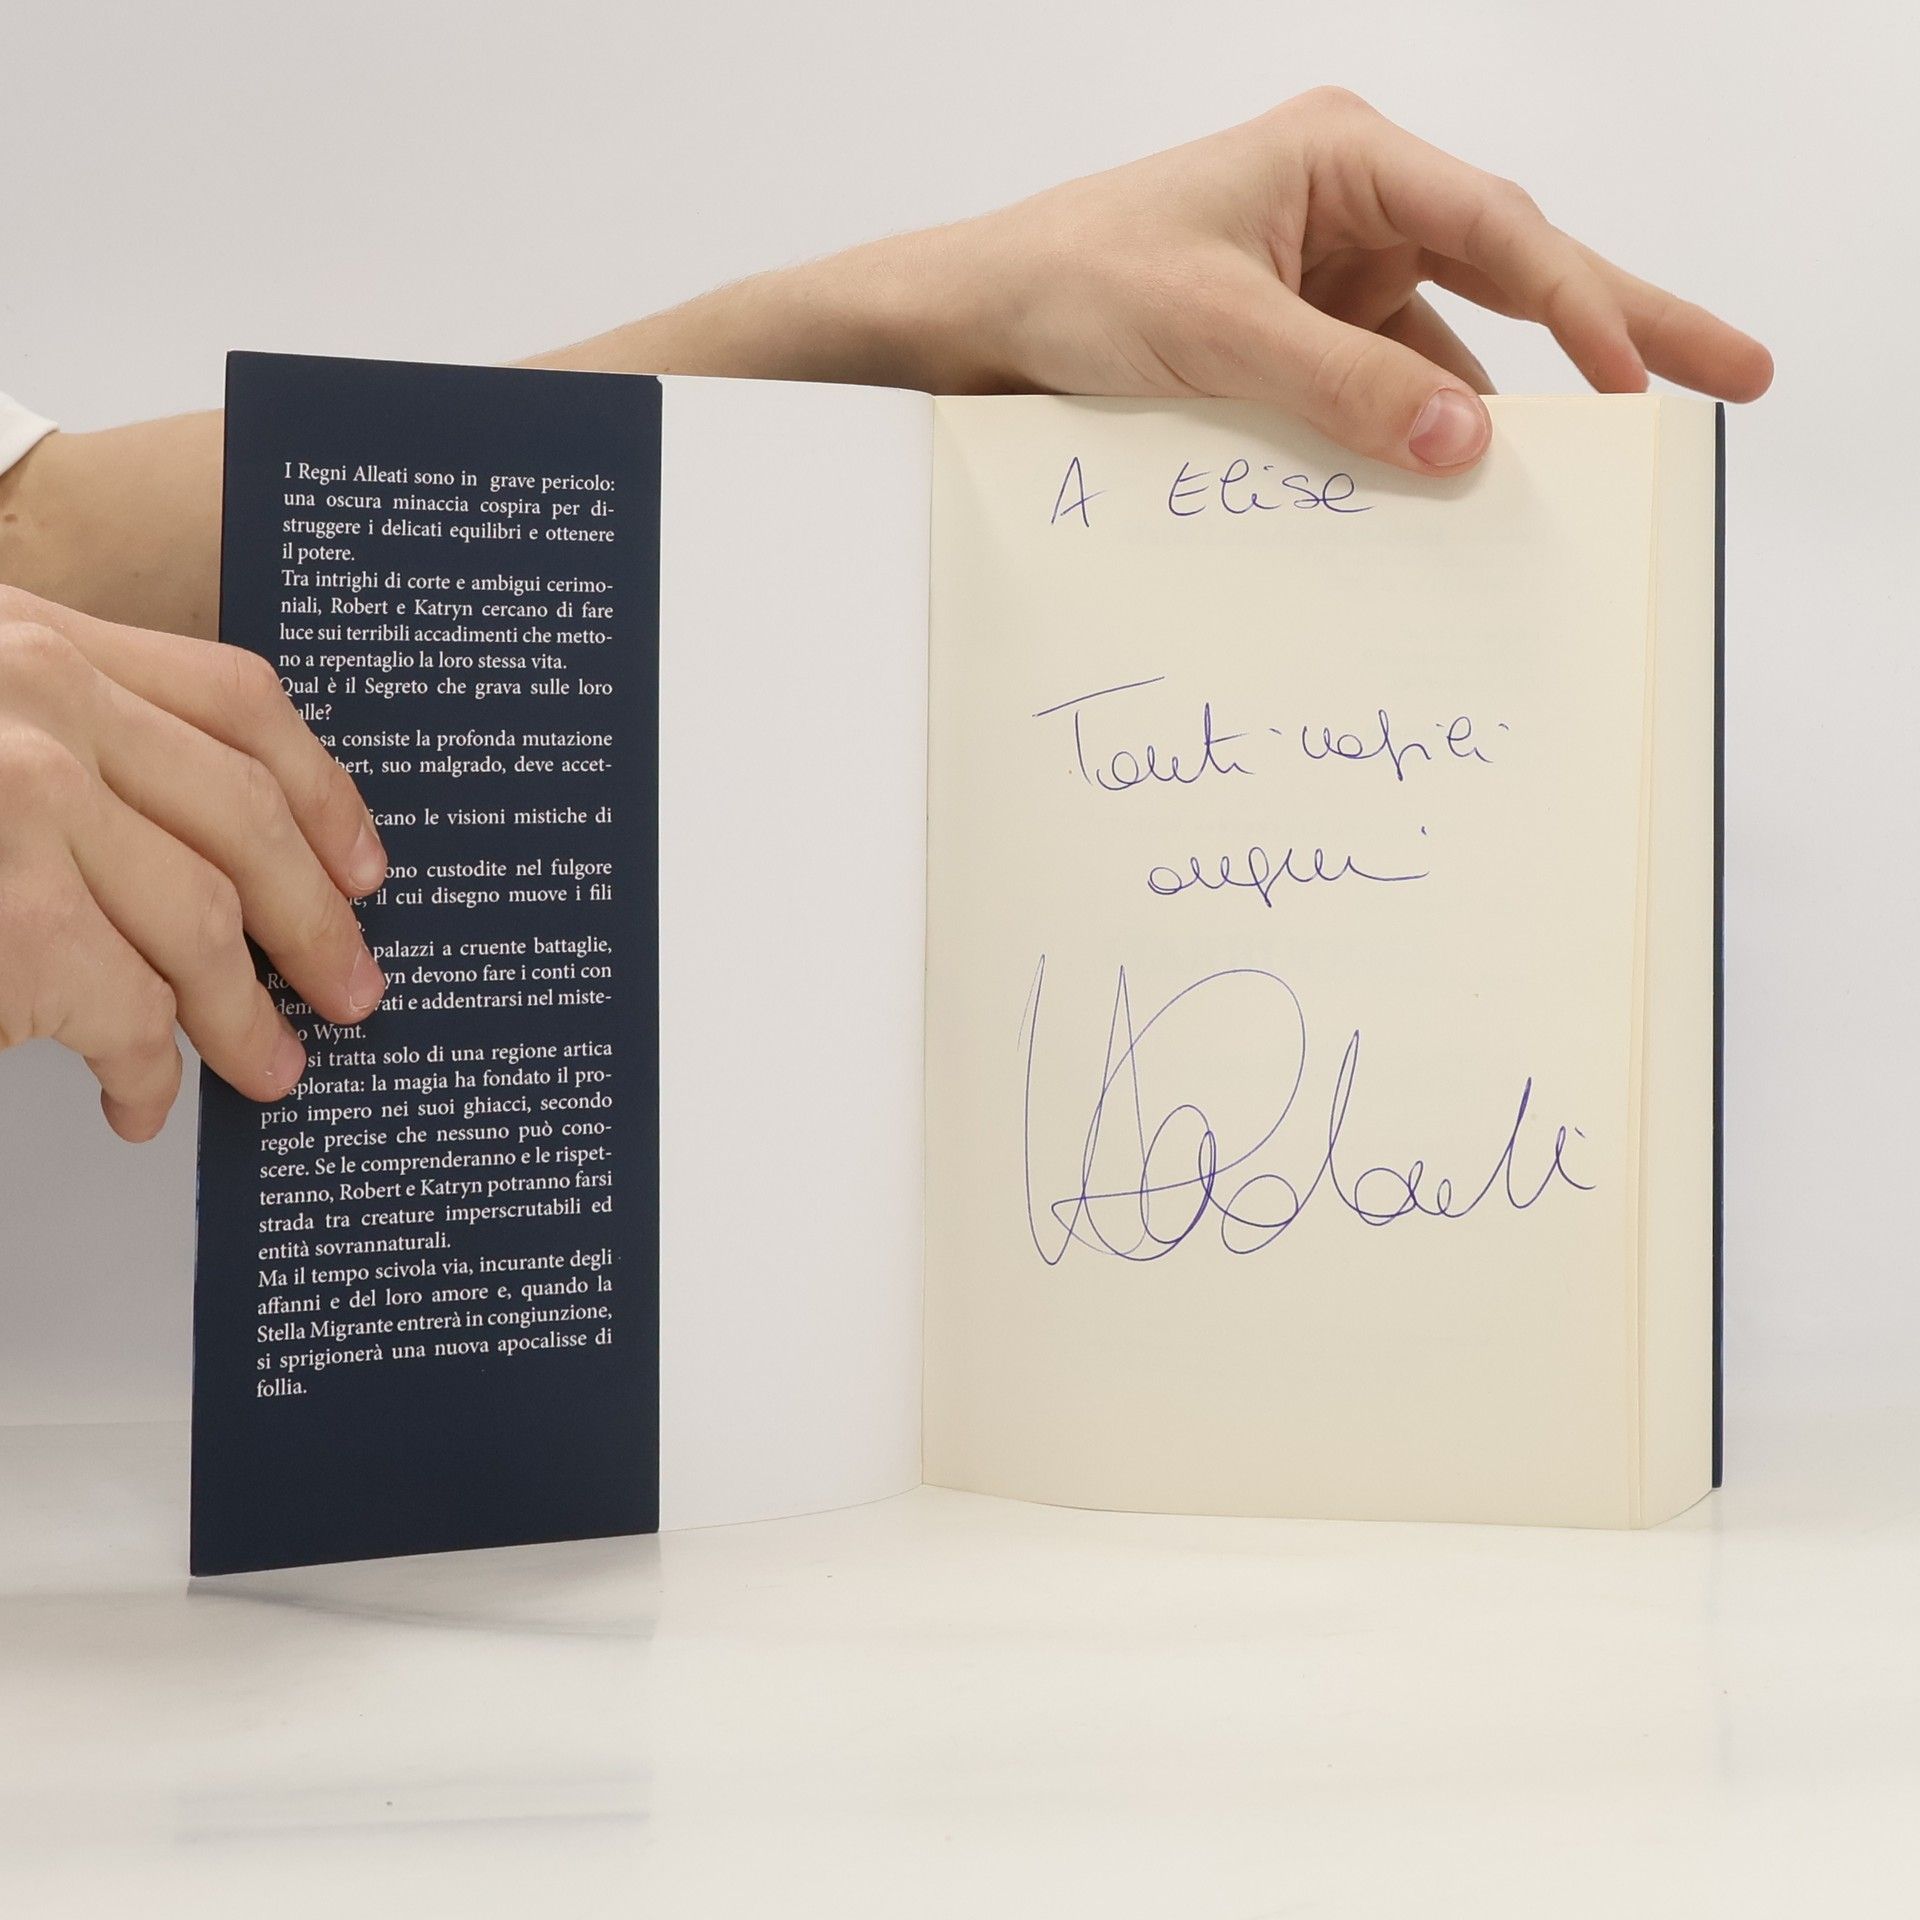 I Regni Alleati sono in grave pericolo:
una oscura minaccia cospira per di-
struggere i delicati equilibri e ottenere
il potere.
Tra intrighi di corte e ambigui cerimo-
niali, Robert e Katryn cercano di fare
luce sui terribili accadimenti che metto-
no a repentaglio la loro stessa vita.
Qual è il Segreto che grava sulle loro
consiste la profonda mutazione
suo malgrado, deve accet-
le visioni mistiche di
custodite nel fulgore
il cui disegno muove i fili
palazzi a cruente battaglie,
devono fare i conti con
e addentrarsi nel miste-
Wynt.
si tratta solo di una regione artica
la magia ha fondato il pro-
prio impero nei suoi ghiacci, secondo
regole precise che nessuno può cono-
scere. Se le comprenderanno e le rispet-
teranno, Robert e Katryn potranno farsi
strada tra creature imperscrutabili ed
entità sovrannaturali.
Ma il tempo scivola via, incurante degli
affanni e del loro amore e, quando la
Stella Migrante entrerà in congiunzione,
si sprigionerà una nuova apocalisse di
follia.
A Elise
Tanti
auguri